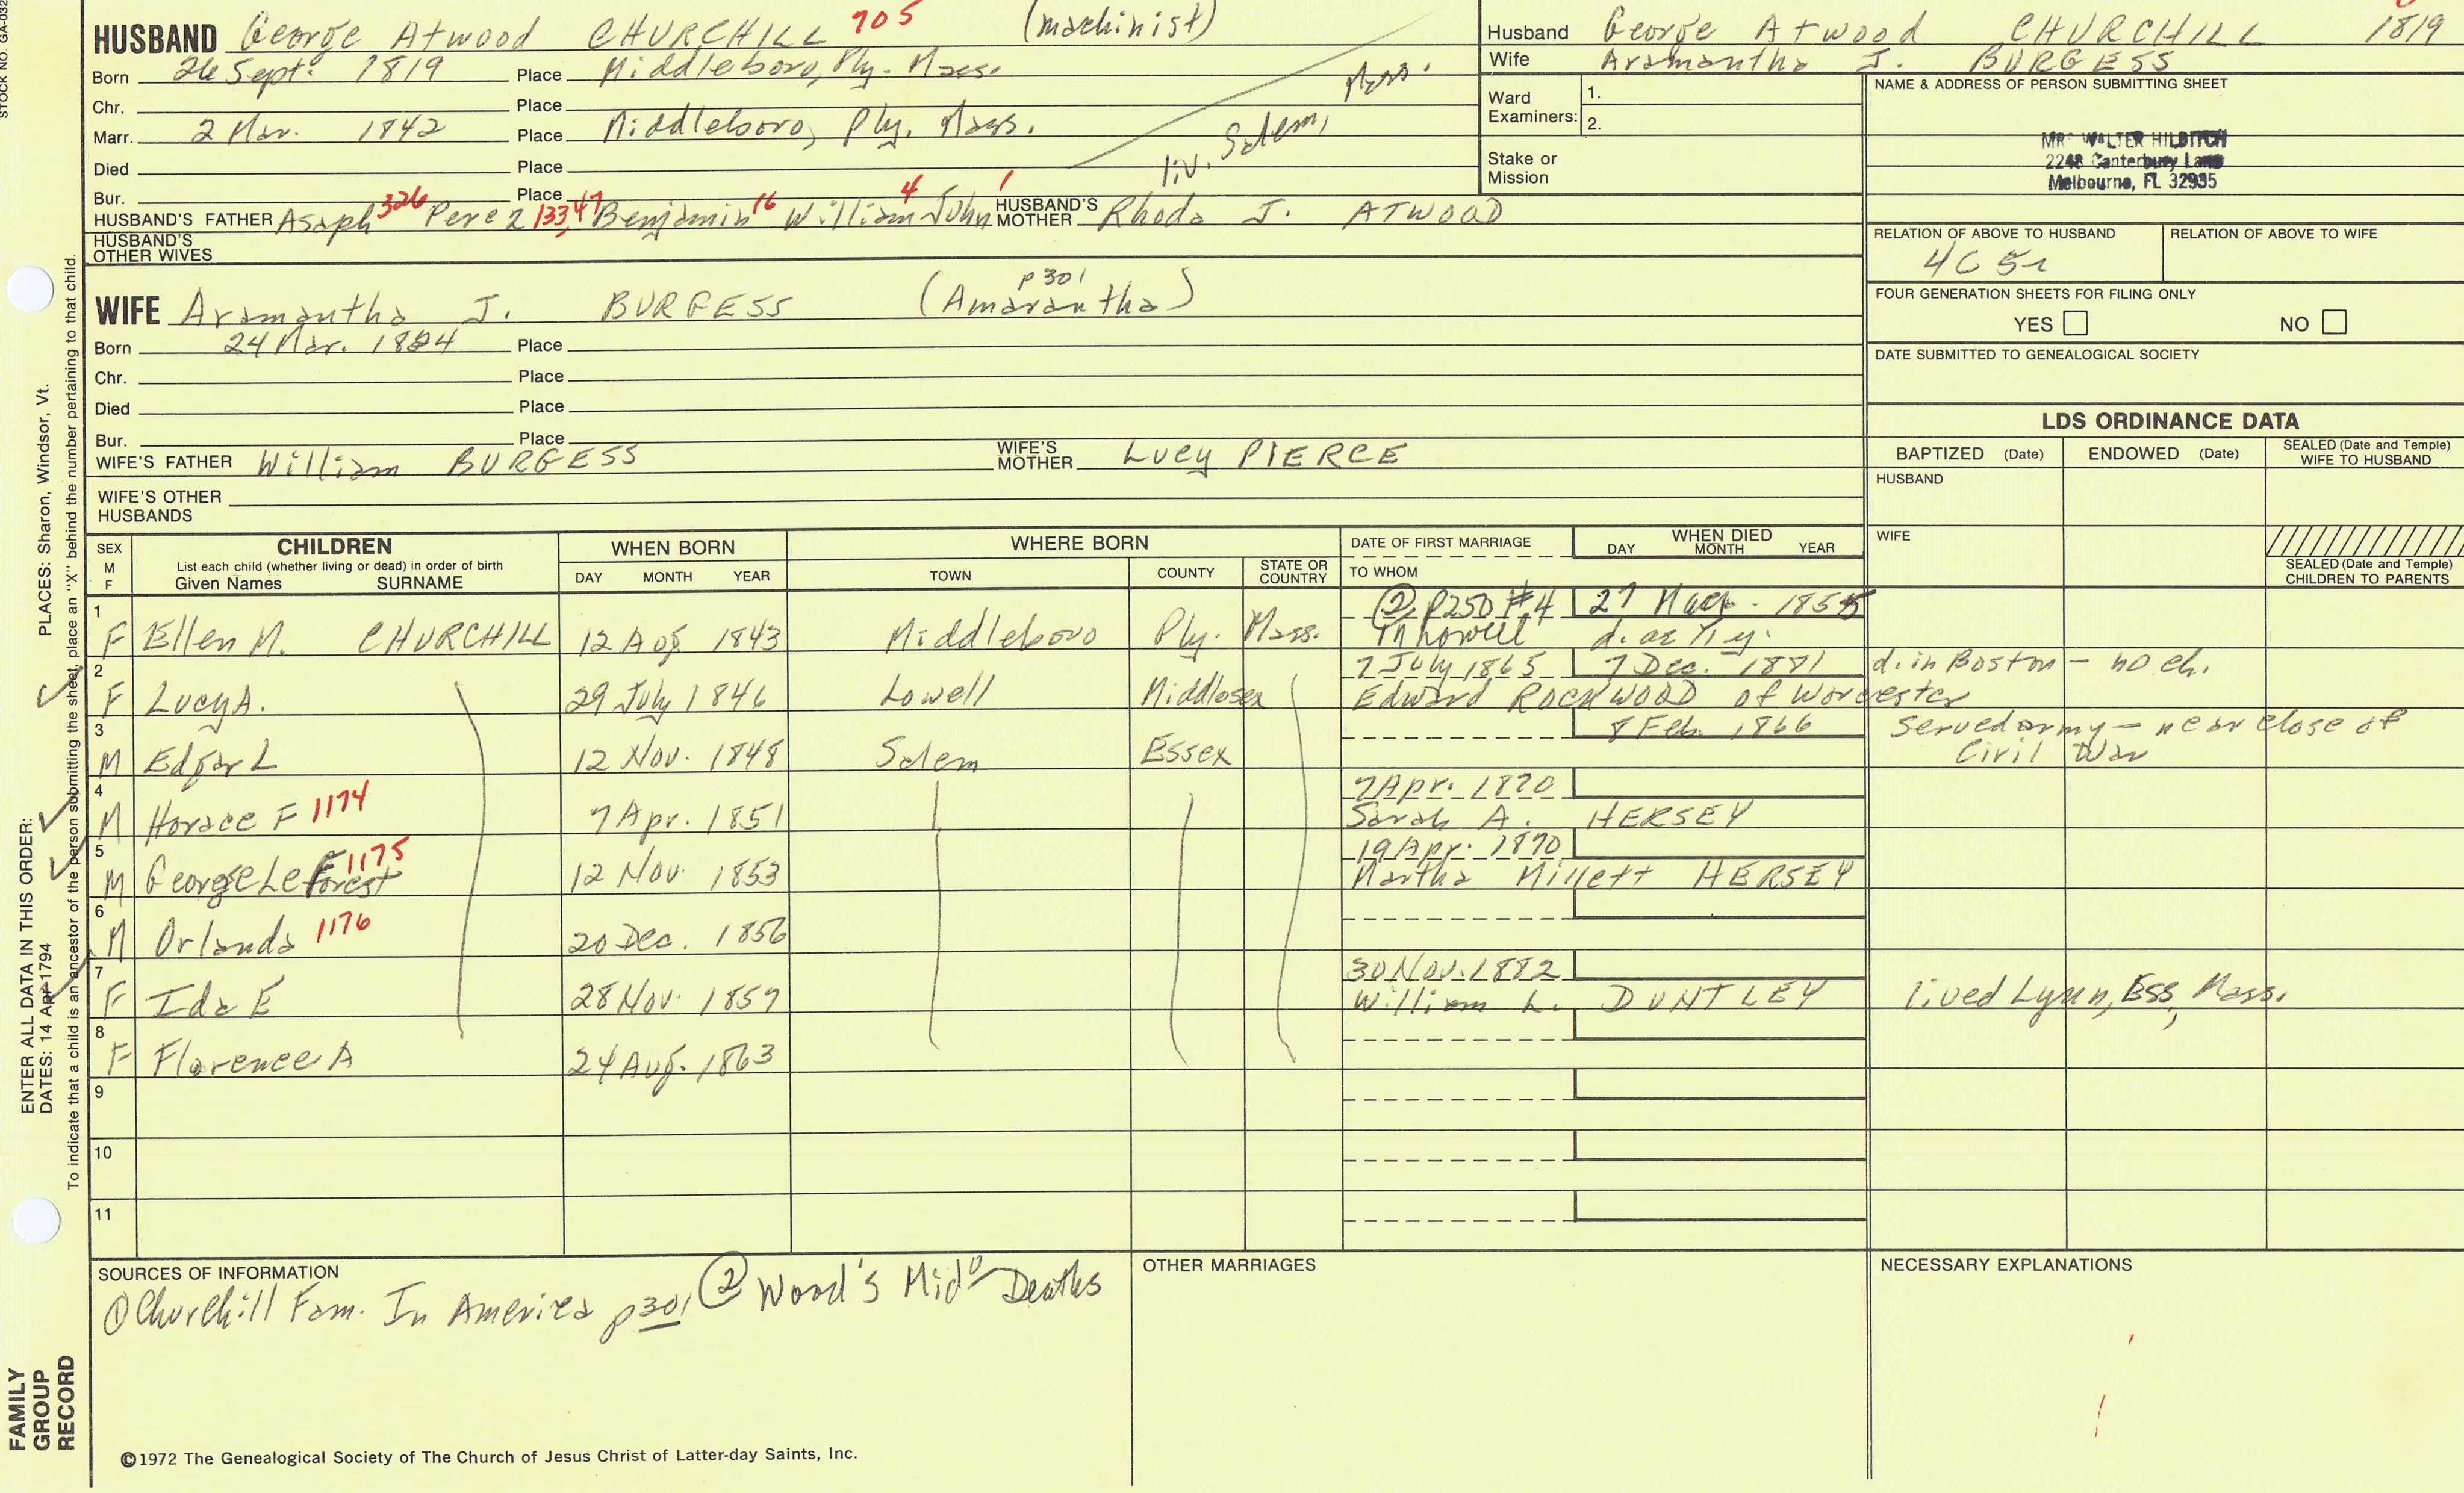 STOCK NO. GA-032
HUSBAND George Atwood CHURCHILL 705 (machinist)
Born 26 Sept. 1819 Place Middleboro, Ply. Mass.
Chr. Place
Marr. 2 Mar. 1842 Place Middleboro, Ply. Mass.
liv. Salem, Mass.
Died Place
Bur. Place
HUSBAND'S FATHER Asaph 326 Perez 133, 47 Benjamin 16 William 4 John 1 HUSBAND'S MOTHER Rhoda J. ATWOOD
HUSBAND'S OTHER WIVES
WIFE Aramantha J. BURGESS (Amarantha) p301
Born 24 Mar. 1824 Place
Chr. Place
Died Place
Bur. Place
WIFE'S FATHER William BURGESS WIFE'S MOTHER Lucy PIERCE
WIFE'S OTHER HUSBANDS
Husband George Atwood CHURCHILL 1819
Wife Aramantha J. BURGESS
Ward Examiners: 1.
2.
Stake or Mission
NAME & ADDRESS OF PERSON SUBMITTING SHEET
MRS WALTER HILDITCH
2248 Canterbury Lane
Melbourne, FL 32935
RELATION OF ABOVE TO HUSBAND RELATION OF ABOVE TO WIFE
4C 5r
FOUR GENERATION SHEETS FOR FILING ONLY
YES NO
DATE SUBMITTED TO GENEALOGICAL SOCIETY
LDS ORDINANCE DATA
BAPTIZED (Date) ENDOWED (Date) SEALED (Date and Temple) WIFE TO HUSBAND
HUSBAND
WIFE
SEALED (Date and Temple) CHILDREN TO PARENTS
SEX M F
CHILDREN
List each child (whether living or dead) in order of birth
Given Names SURNAME
WHEN BORN
DAY MONTH YEAR
WHERE BORN
TOWN COUNTY STATE OR COUNTRY
DATE OF FIRST MARRIAGE
TO WHOM
WHEN DIED
DAY MONTH YEAR
1 ② P250 #4 27 1855
F Ellen M. CHURCHILL 12 Aug 1843 Middleboro Ply. Mass. In Lowell d. ae 11 y.
2 7 July 1865 7 Dec. 1881 d. in Boston - no ch.
F Lucy A. 29 July 1846 Lowell Middlesex Edward ROCKWOOD of Worcester
3 8 Feb. 1866 Served army - near close of
M Edgar L 12 Nov. 1848 Salem Essex Civil War
4 7 Apr. 1870
M Horace F 1174 7 Apr. 1851 Sarah A. HERSEY
5 19 Apr. 1870
M George LeForest 1175 12 Nov. 1853 Martha Millett HERSEY
6
M Orlando 1176 20 Dec. 1856
7 30 Nov. 1882
F Ida E 28 Nov. 1859 William L. DUNTLEY lived Lynn, Ess, Mass.
8
F Florence A 24 Aug. 1863
9
10
11
SOURCES OF INFORMATION
① Churchill Fam. In America p301 ② Wood's Mid° Deaths
OTHER MARRIAGES
NECESSARY EXPLANATIONS
©1972 The Genealogical Society of The Church of Jesus Christ of Latter-day Saints, Inc.
ENTER ALL DATA IN THIS ORDER:
DATES: 14 Apr 1794 PLACES: Sharon, Windsor, Vt.
To indicate that a child is an ancestor of the person submitting the sheet, place an "X" behind the number pertaining to that child.
FAMILY
GROUP
RECORD